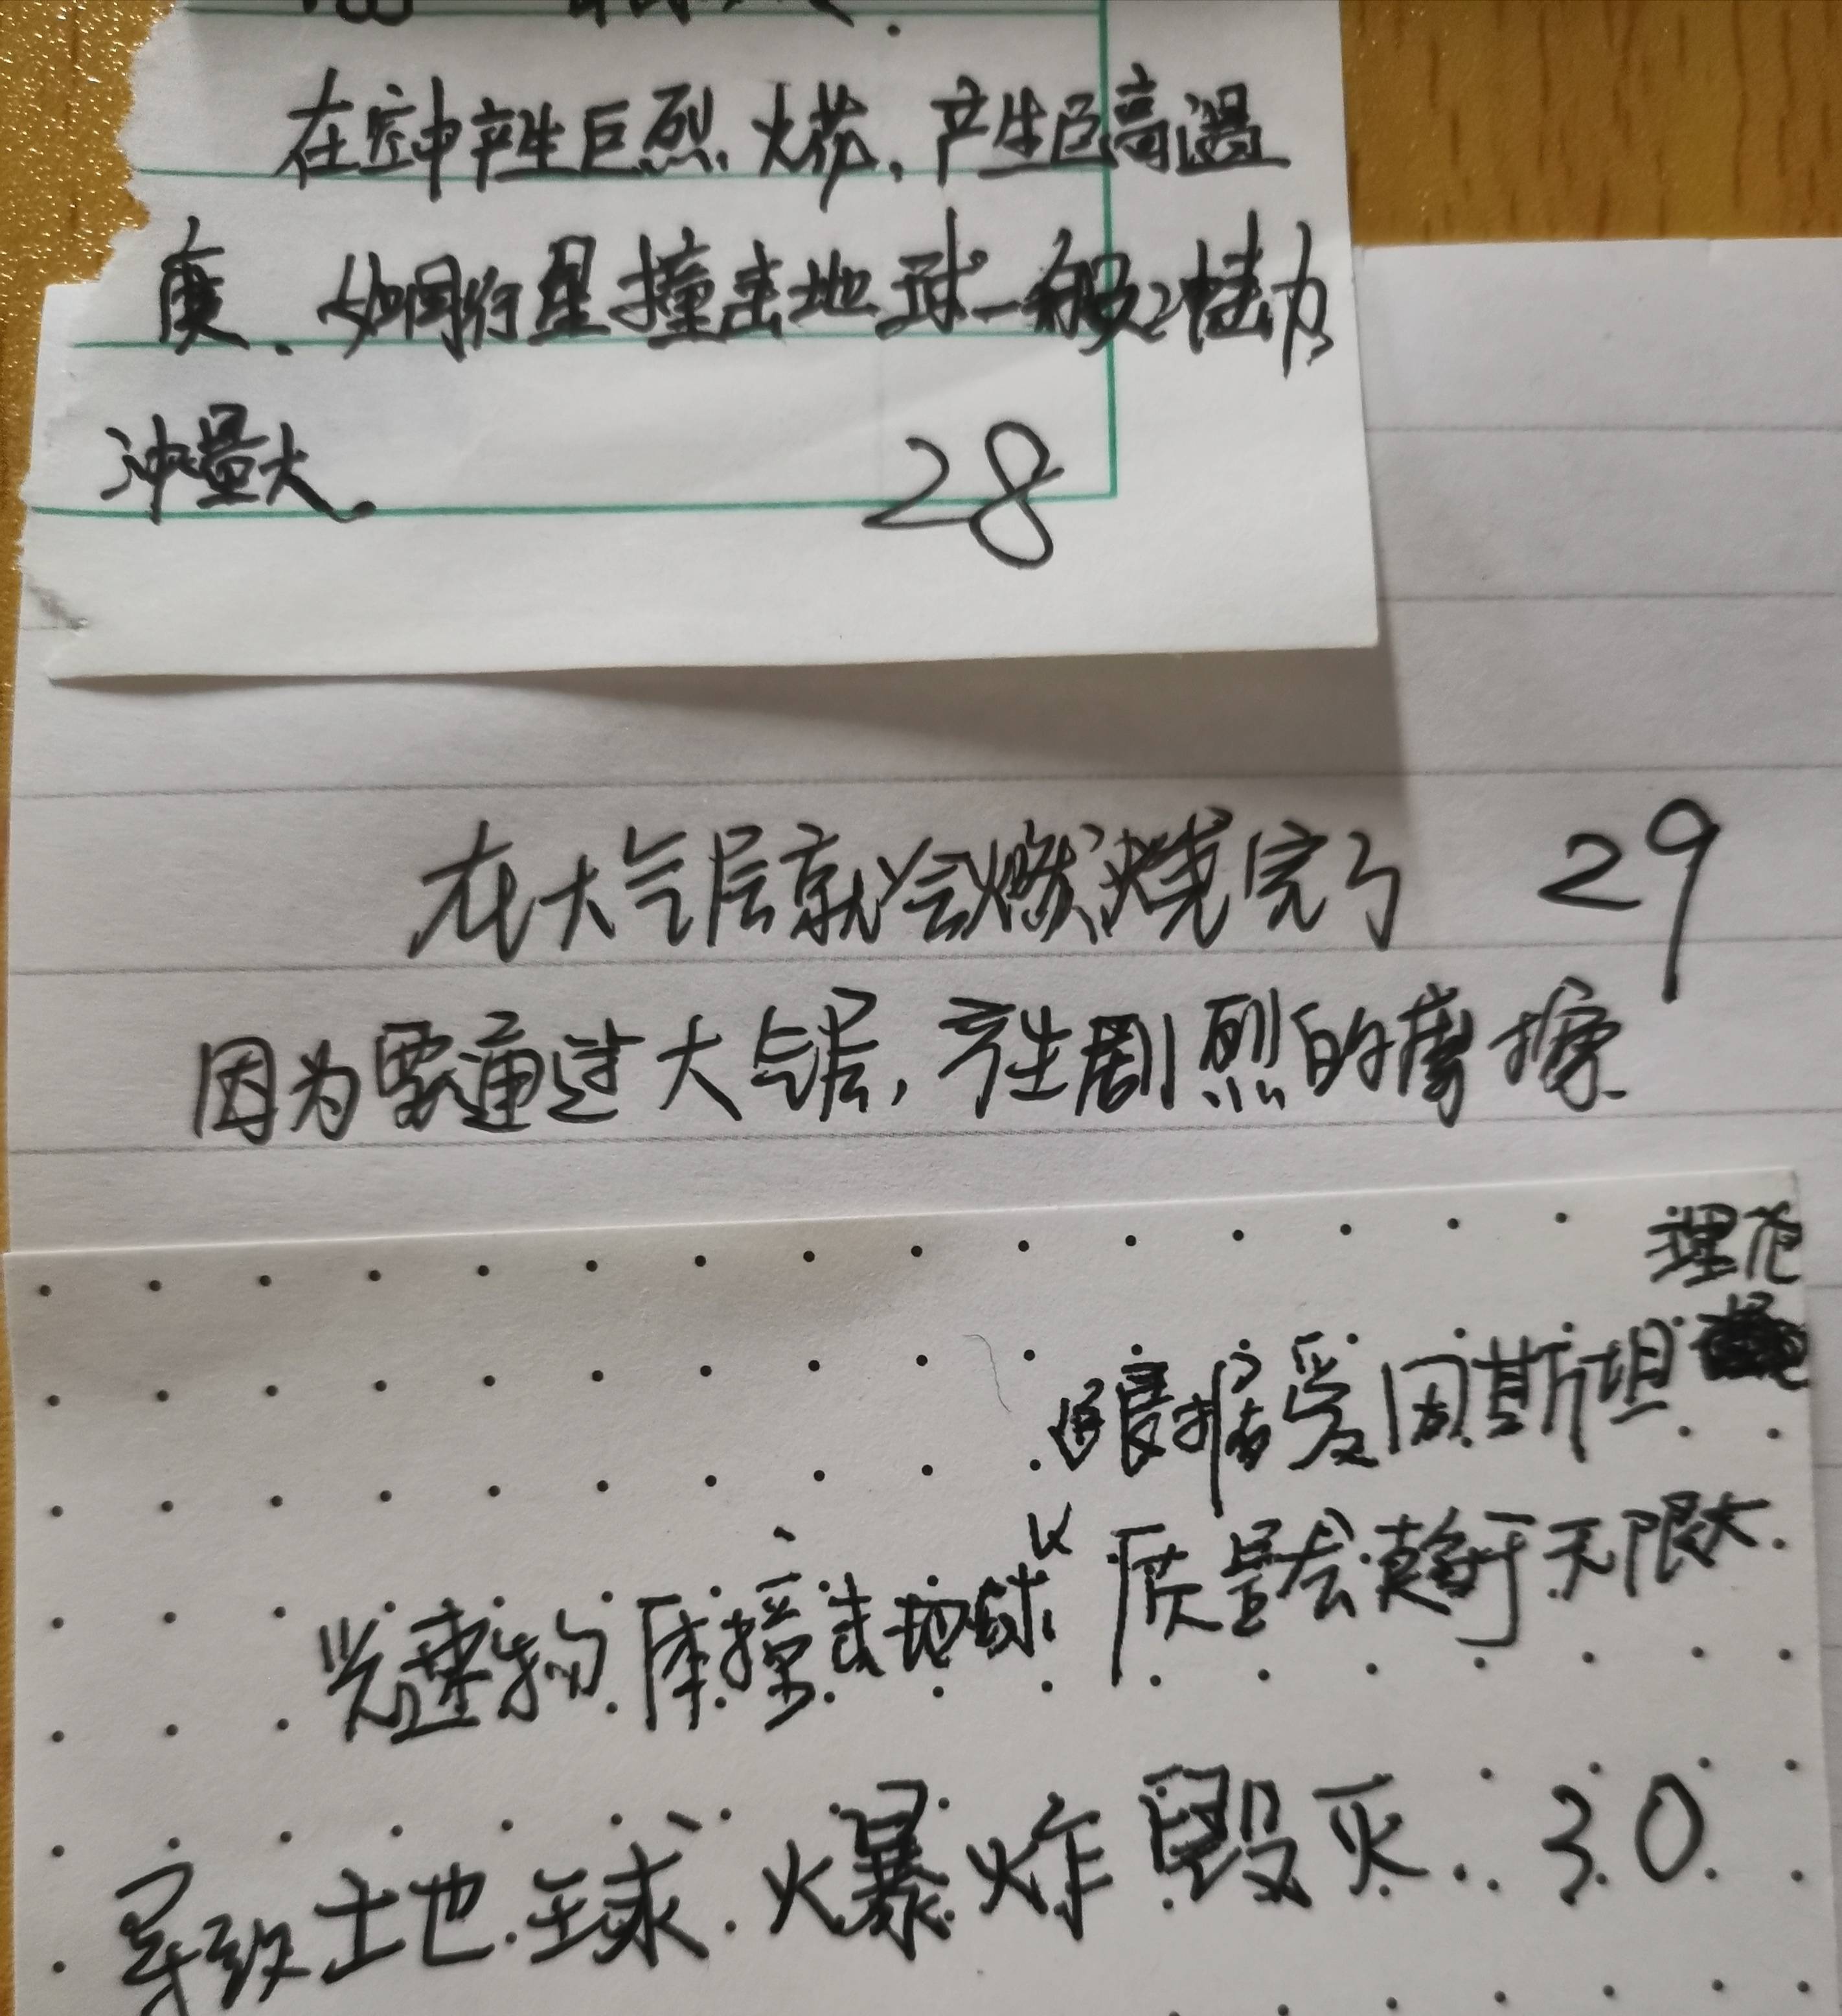 在空中产生巨烈火花，产生巨高温
度．如同行星撞击地球一般之撞力
冲量大。
28
在大气层就会燃烧完了 29
因为要通过大气层，产生剧烈的摩擦
理论
根据爱因斯坦
质量会趋于无限大.
光速物体撞击地球
导致地球爆炸毁灭. 30